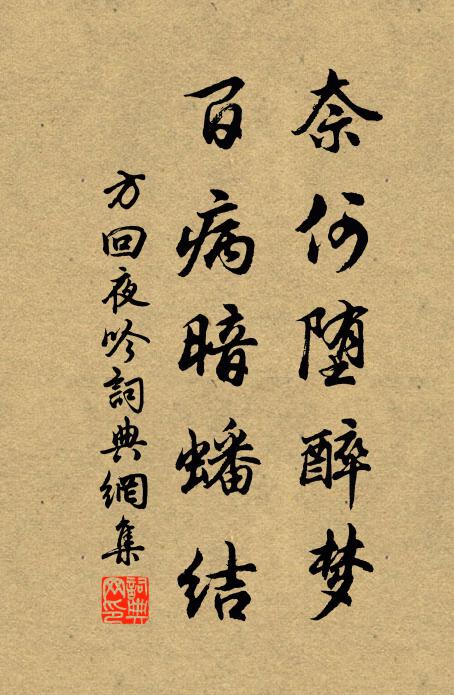 奈何堕醉梦
百病暗蟠结
方回夜吟詞典網集
詞典网印